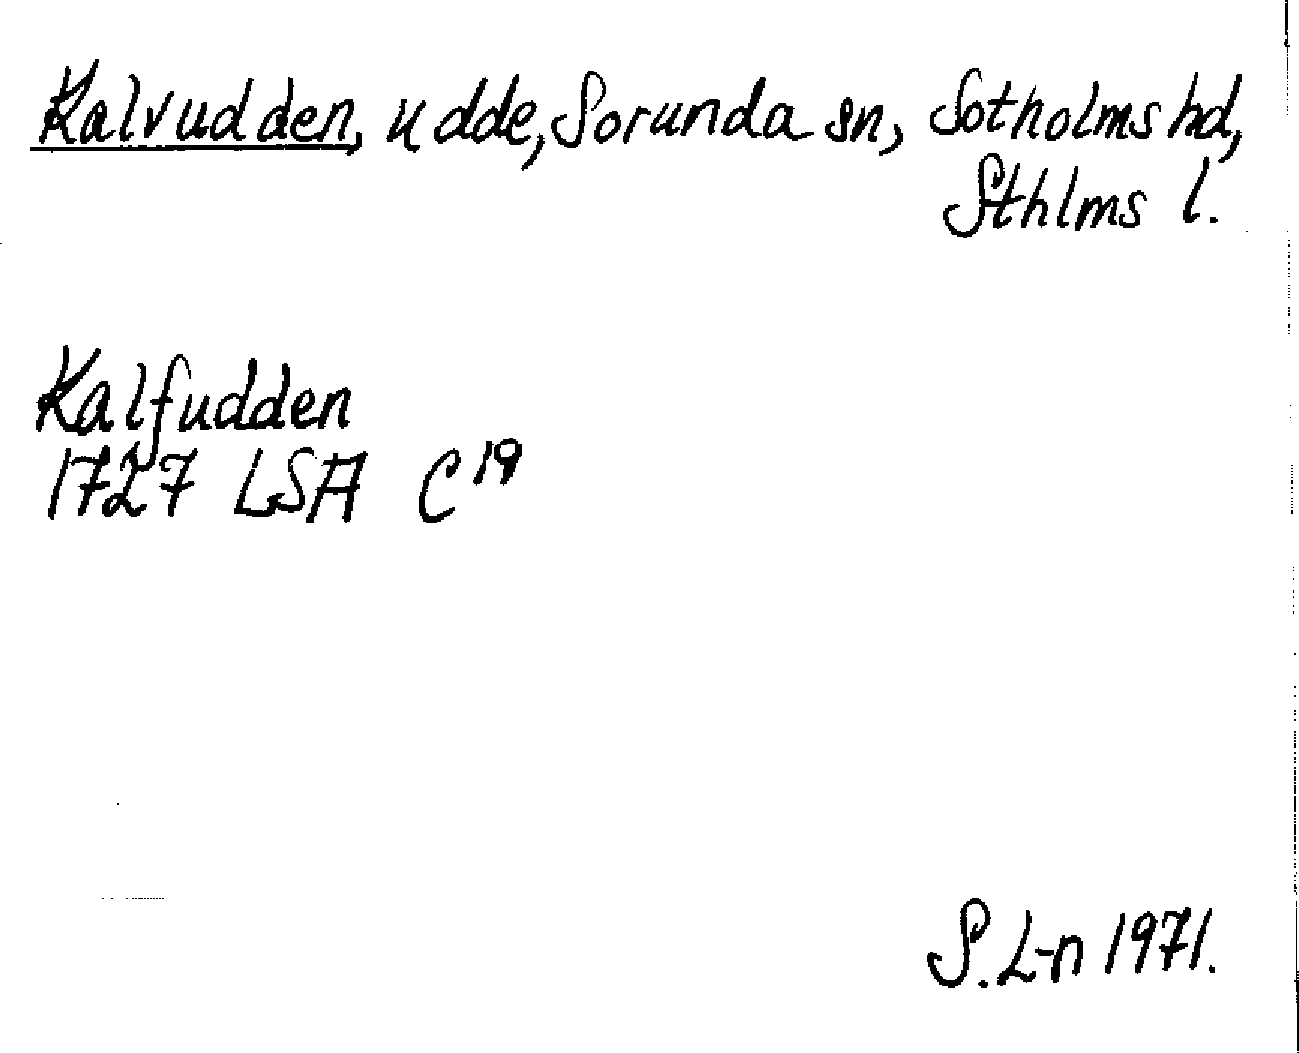 Kalvudden, udde, Sorunda sn, Sotholms hd,
Sthlms l.
Kalfudden
1727 LSA C¹⁹
S. L-n 1971.